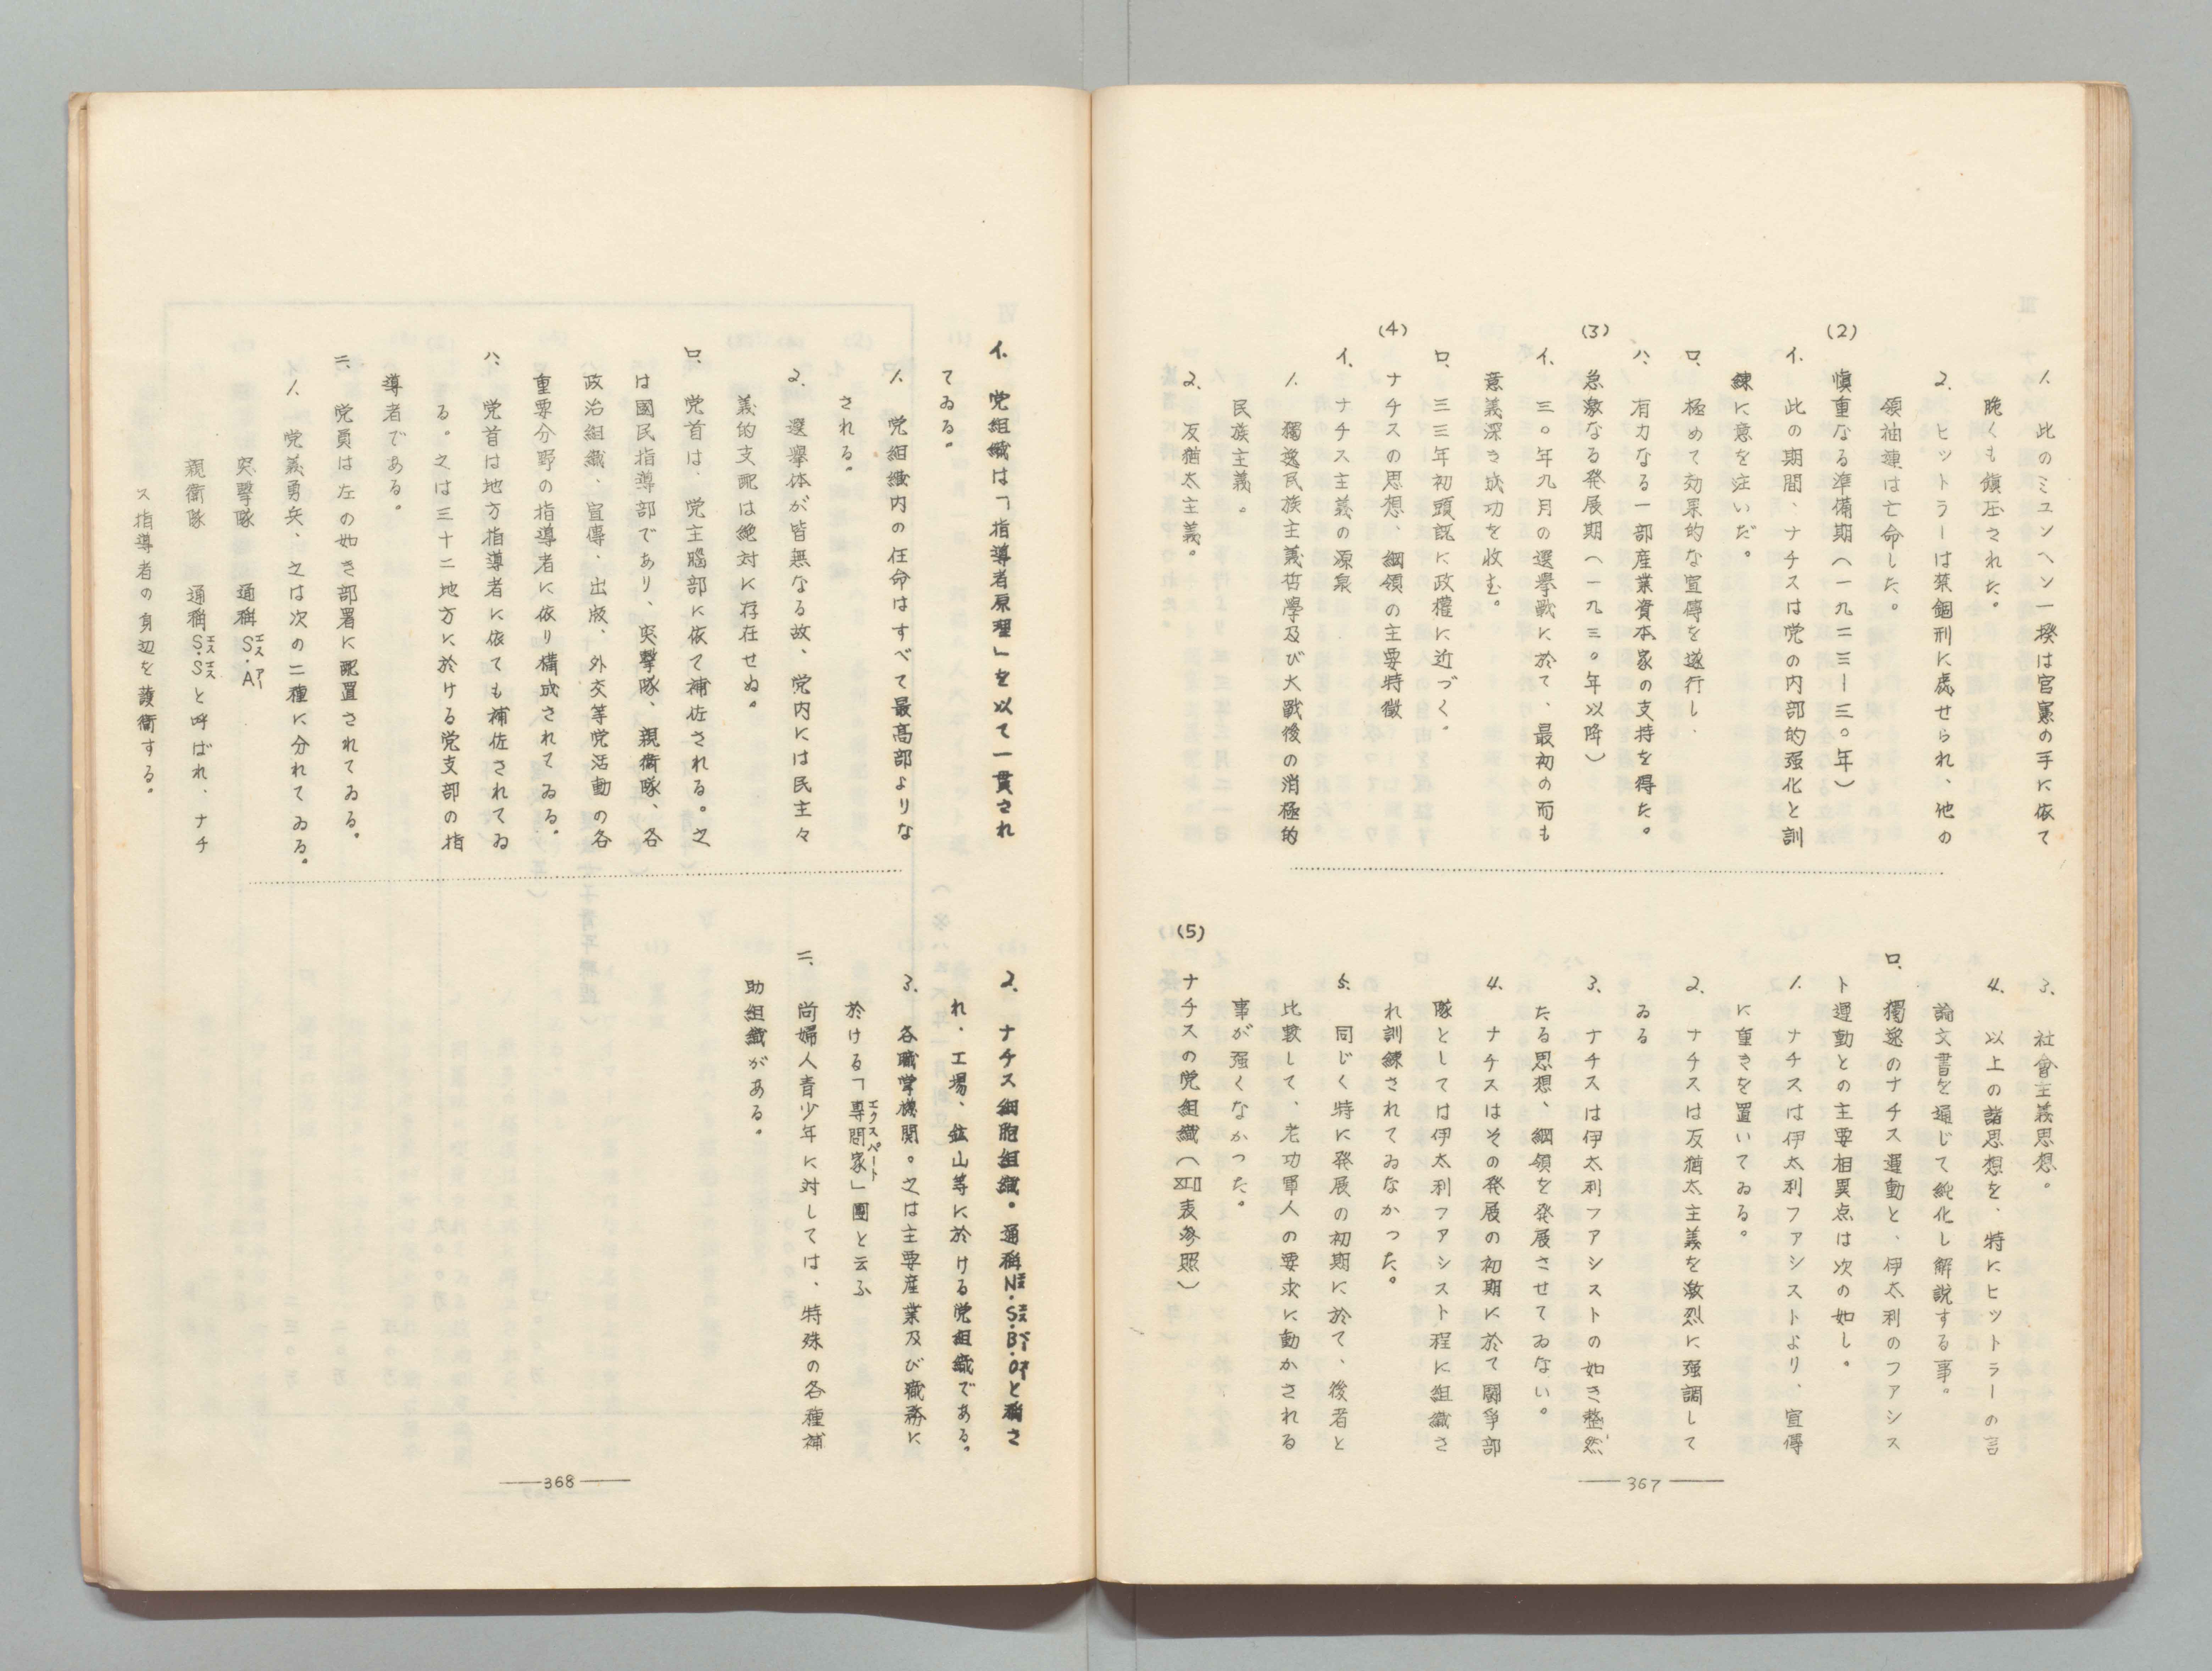 1. 此のミユンヘン一揆は官憲の手に依て
脆くも鎭圧された。
2. ヒットラーは禁錮刑に處せられ、他の
領袖連は亡命した。
(2) 愼重なる準備期（一九二三ー三〇年）
イ. 此の期間、ナチスは党の内部的强化と訓
練に意を注いだ。
ロ. 極めて効果的な宣傳を遂行し.
ハ. 有力なる一部産業資本家の支持を得た。
(3) 急激なる発展期（一九三〇年以降）
イ. 三〇年九月の選擧戰に於て、最初の而も
意義深き成功を收む。
ロ. 三三年初頭既に政權に近づく。
(4) ナチスの思想、綱領の主要特徴
イ. ナチス主義の源泉
1. 獨逸民族主義哲學及び大戰後の消極的
民族主義。
2. 反猶太主義。
3. 社會主義思想。
4. 以上の諸思想を、特にヒットラーの言
論文書を通じて純化し解説する事。
ロ. 獨逸のナチス運動と、伊太利のファシス
ト運動との主要相異点は次の如し。
1. ナチスは伊太利ファシストより、宣傳
に重きを置いてゐる。
2. ナチスは反猶太主義を激烈に强調して
ゐる
3. ナチスは伊太利ファシストの如き整然
たる思想、綱領を発展させてゐない。
4. ナチスはその発展の初期に於て鬪爭部
隊としては伊太利ファシスト程に組織さ
れ訓練されてゐなかった。
5. 同じく特に発展の初期に於て、後者と
比較して、老功軍人の要求に動かされる
事が强くなかつた。
(5) ナチスの党組織（XII表参照）
367
イ. 党組織は「指導者原理」を以て一貫され
てゐる。
1. 党組織内の任命はすべて最高部よりな
される。
2. 選擧体が皆無なる故、党内には民主々
義的支配は絶対に存在せぬ。
ロ. 党首は、党主腦部に依て補佐される。之
は國民指導部であり、突撃隊、親衛隊、各
政治組織、宣傳、出版、外交等党活動の各
重要分野の指導者に依り構成されてゐる。
ハ. 党首は地方指導者に依ても補佐されてゐ
る。之は三十二地方に於ける党支部の指
導者である。
ニ. 党員は左の如き部署に配置されてゐる。
1. 党義勇兵、之は次の二種に分れてゐる。
突撃隊 通稱S.A エス アー
親衛隊 通稱S.S エス エス と呼ばれ、ナチ
ス指導者の身辺を護衛する。
2. ナチス細胞組織。通稱N.S.B.Oと稱さ
れ.工場、鉱山等に於ける党組織である。
3. 各職掌機関。之は主要産業及び職務に
於ける「專門家 エクスペート」團と云ふ
ニ. 尚婦人青少年に対しては、特殊の各種補
助組織がある。
368